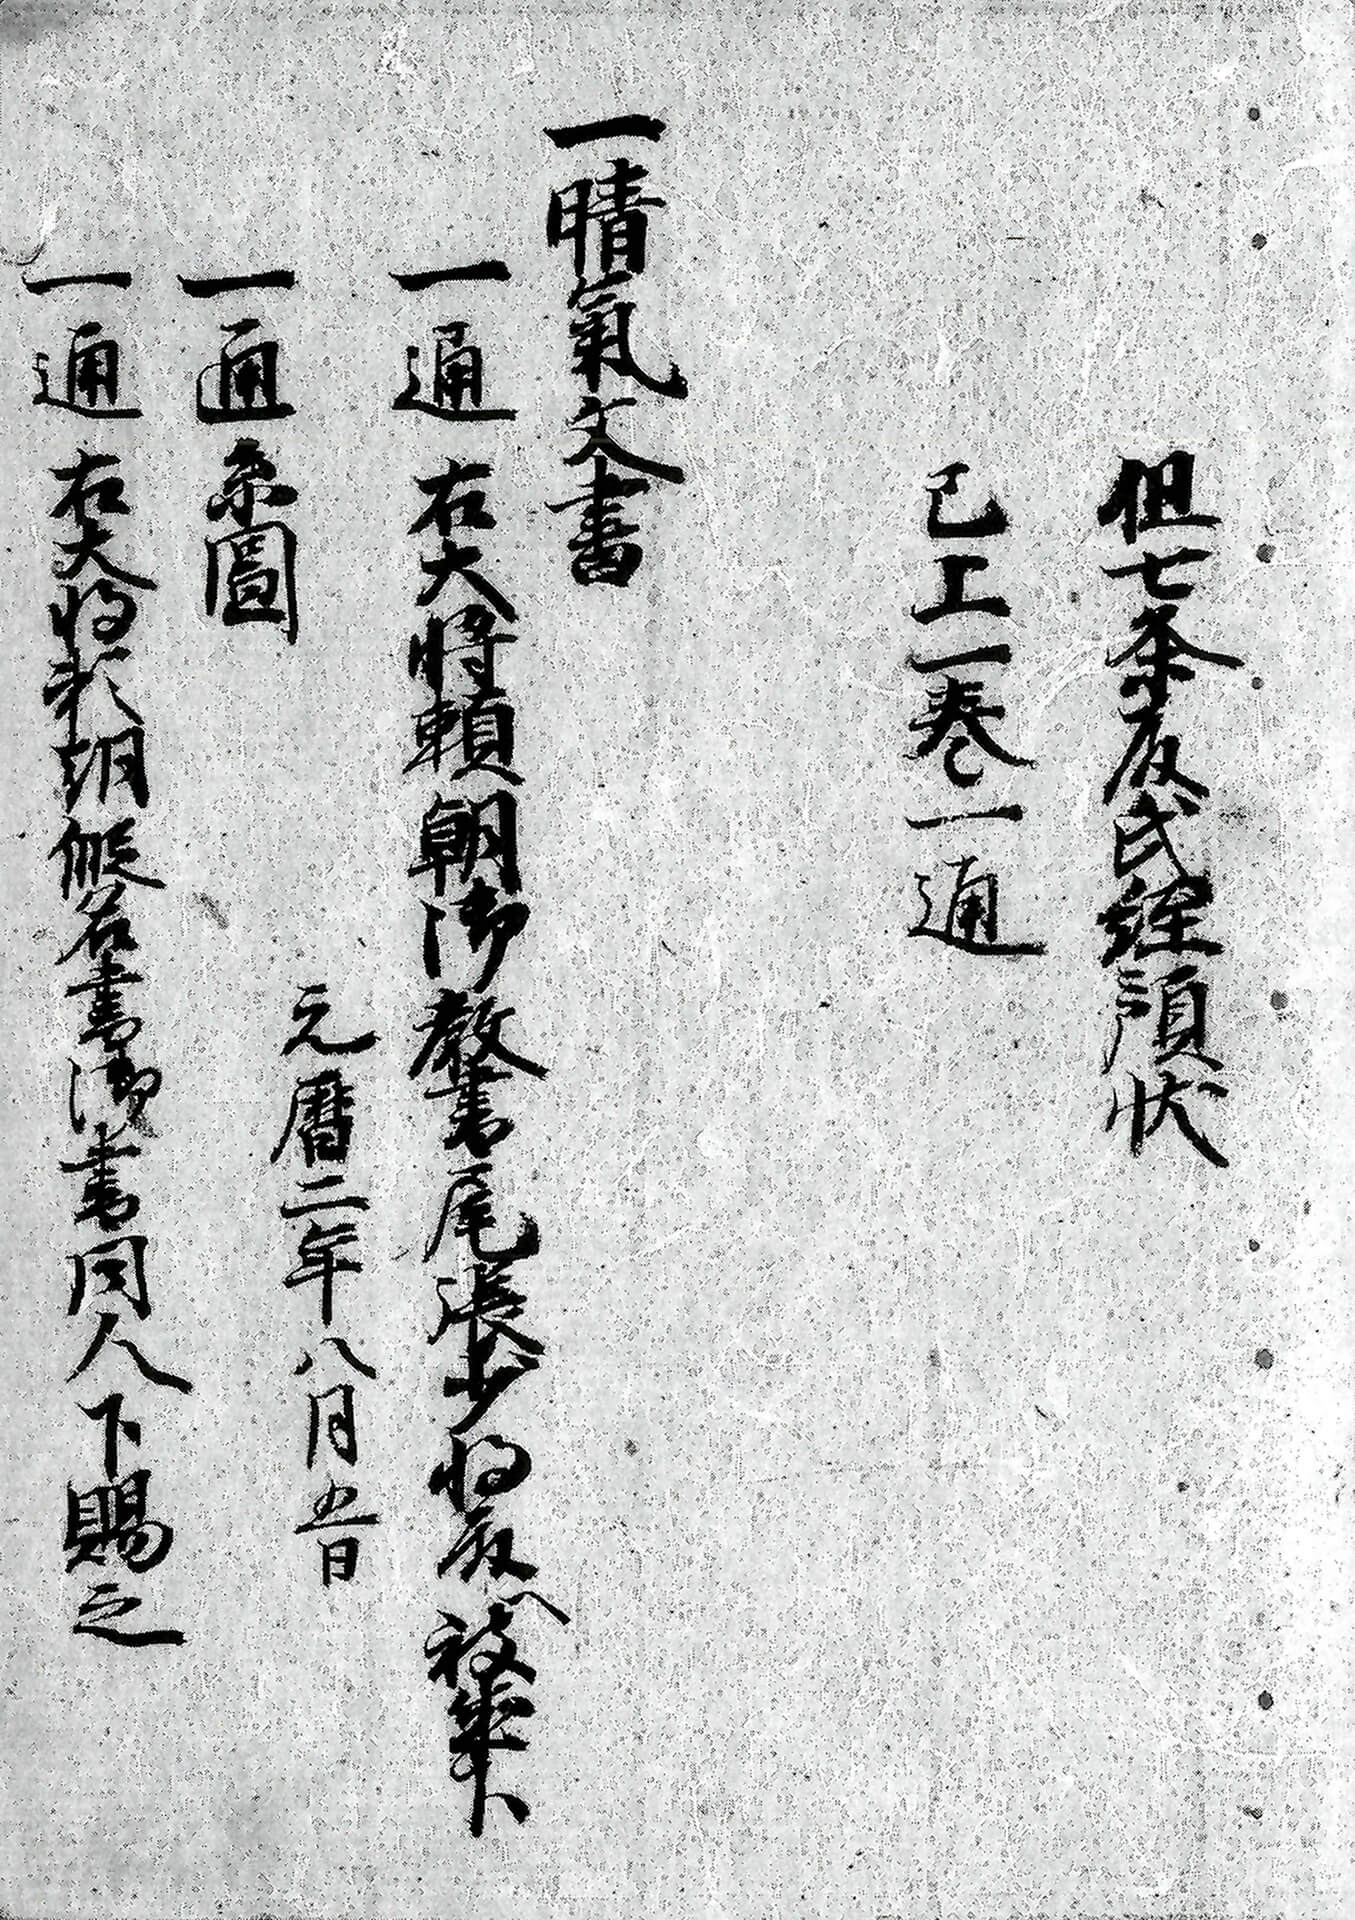 但七条殿氏経預状
已上一巻一通
一晴氣文書
一通右大将頼朝御教書尾張少将殿へ被
元暦二年八月五日
一通系圖
一通右大将頼朝仮名書御書同人下賜之